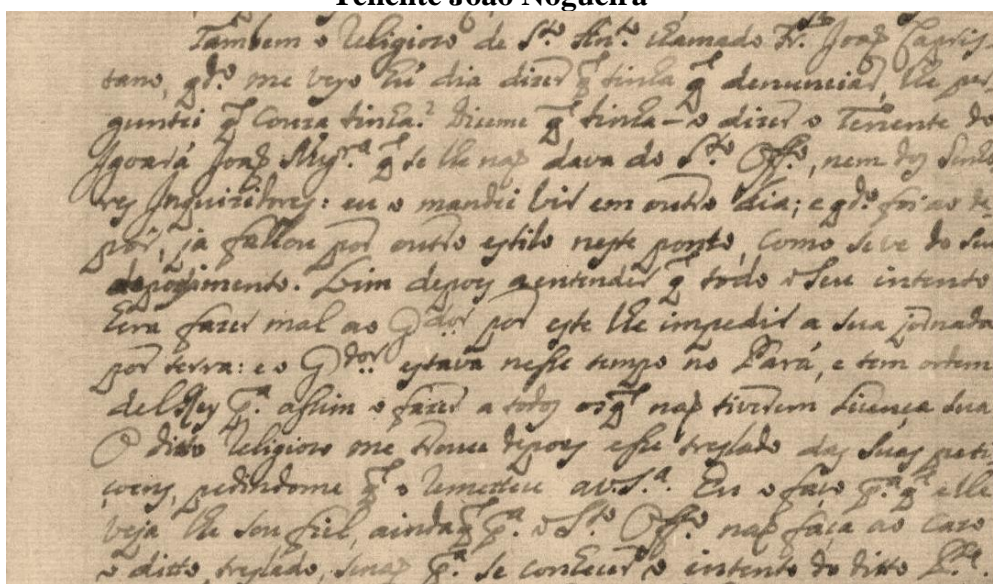 Tenente João Nogueira
Tambem o Religioso de S.to Ant.o chamado Fr. Joaõ Capris-
tano, qd.o me veyo hũ dia dizer q̃ tinha q̃ denunciar, lhe per
guntei q̃ Couza tinha? Diceme q̃ tinha o dizer o Tenente do
Igoará Joaõ Nog.ra q̃ se lhe naõ dava do S.to Off.o, nem dos Senho
res Inquizidores: eu o mandei vir em outro dia; e qd.o foi ao de
por, ja fallou por outro estilo neste ponto, como se ve do seu
depoimento. Vim depois a entender q̃ todo o seu intento
hera fazer mal ao G.dor por este lhe impedir a sua jornada
por terra: e o G.dor estava nesse tempo no Pará, e tem ordem
del Rey p.a assim o fazer a todos os q̃ naõ tiverem Licença sua
O ditto Religioso me trouxe depois esse treslado das suas peti
coens, pedindome q̃ o remettese a V.S.a. Eu o faço p.a q̃ elle
veja lhe sou fiel, ainda q̃ p.a o S.to Off.o naõ faça ao caso
o ditto treslado, senaõ p.a se conhecer o intento do ditto P.e.